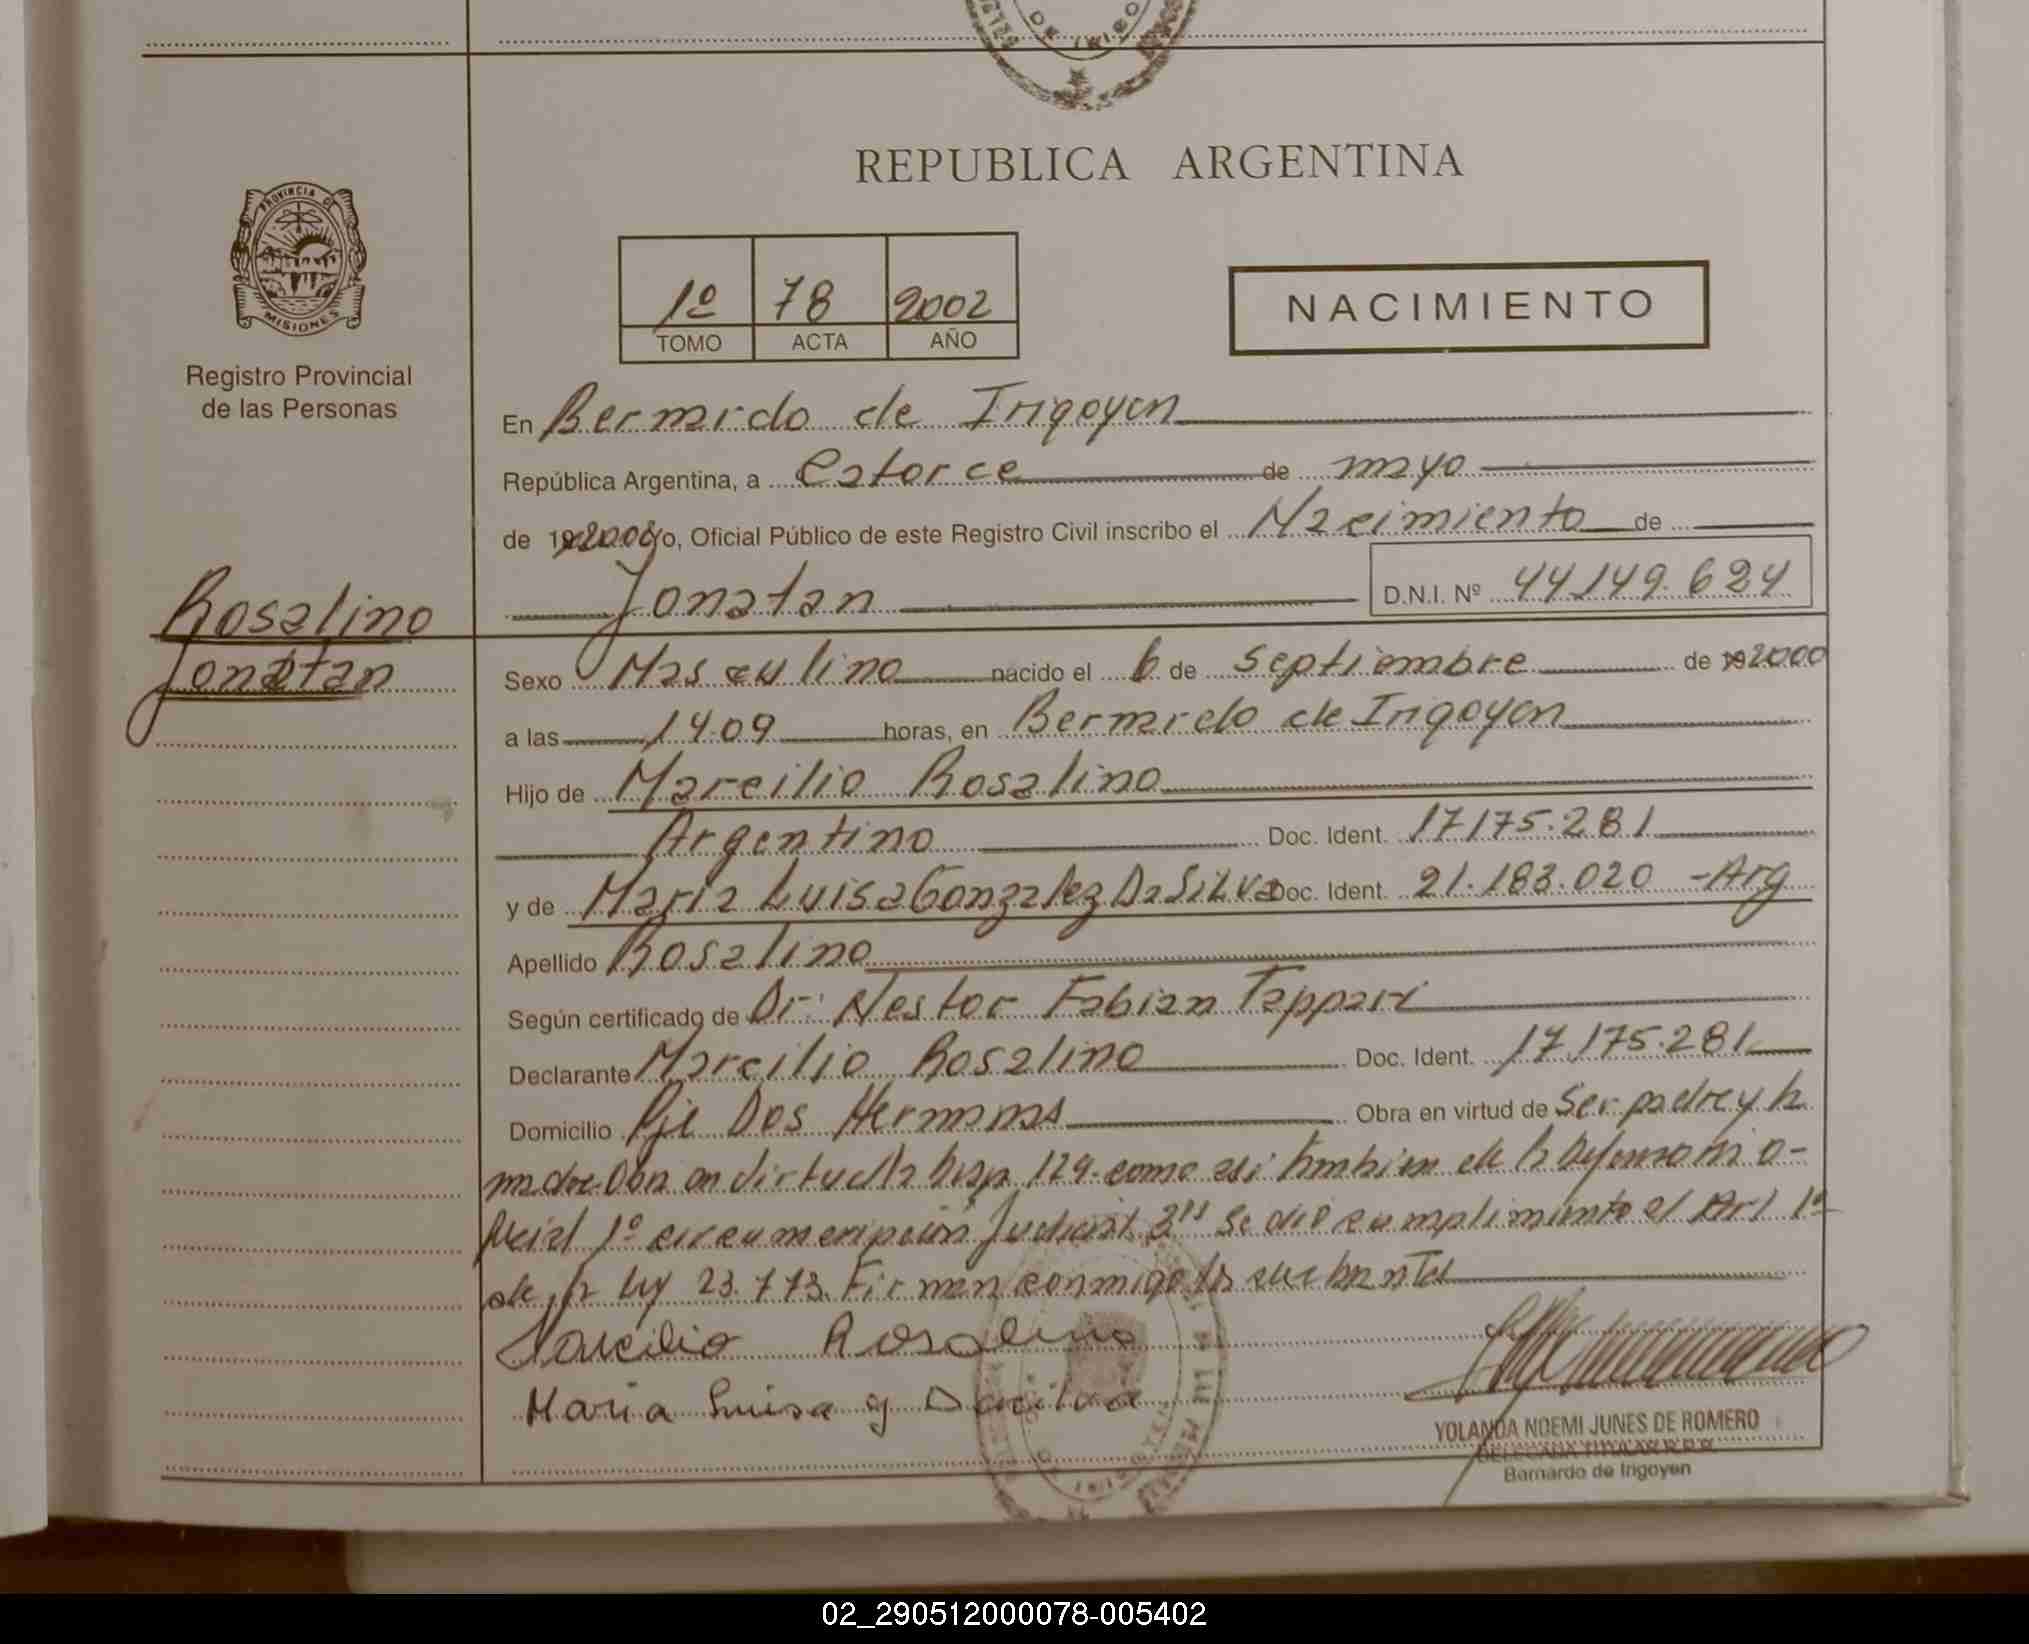 DE IRIGO
REPUBLICA ARGENTINA
PROVINCIA DE
MISIONES
Registro Provincial
de las Personas
1º 78 2002
TOMO ACTA AÑO
NACIMIENTO
En Bernardo de Irigoyen
República Argentina, a Catorce de mayo
de 19 2002 yo, Oficial Público de este Registro Civil inscribo el Nacimiento de
Jonatan D.N.I. Nº 44.149.624
Rosalino
Jonatan
Sexo Masculino nacido el 6 de Septiembre de 19 2000
a las 14.09 horas, en Bernardo de Irigoyen
Hijo de Marcilio Rosalino
Argentino Doc. Ident. 17.175.281
y de Maria Luisa Gonzalez Da Silva Doc. Ident. 21.183.020 - Arg
Apellido Rosalino
Según certificado de Dr: Nestor Fabian Tappari
Declarante Marcilio Rosalino Doc. Ident. 17.175.281
Domicilio Pje Dos Hermanas Obra en virtud de Ser padre y la
madre Obra en virtud la 129. como asi tambien de la
1º circunscripción Judicial Se dió cumplimiento al Art 1º
de la ley 23.773. Firman conmigo
Marcilio Rosalino
Maria Luisa g Dacilva
YOLANDA NOEMI JUNES DE ROMERO
DELEGADA TITULAR R.P.P.
Bernardo de Irigoyen
02_290512000078-005402